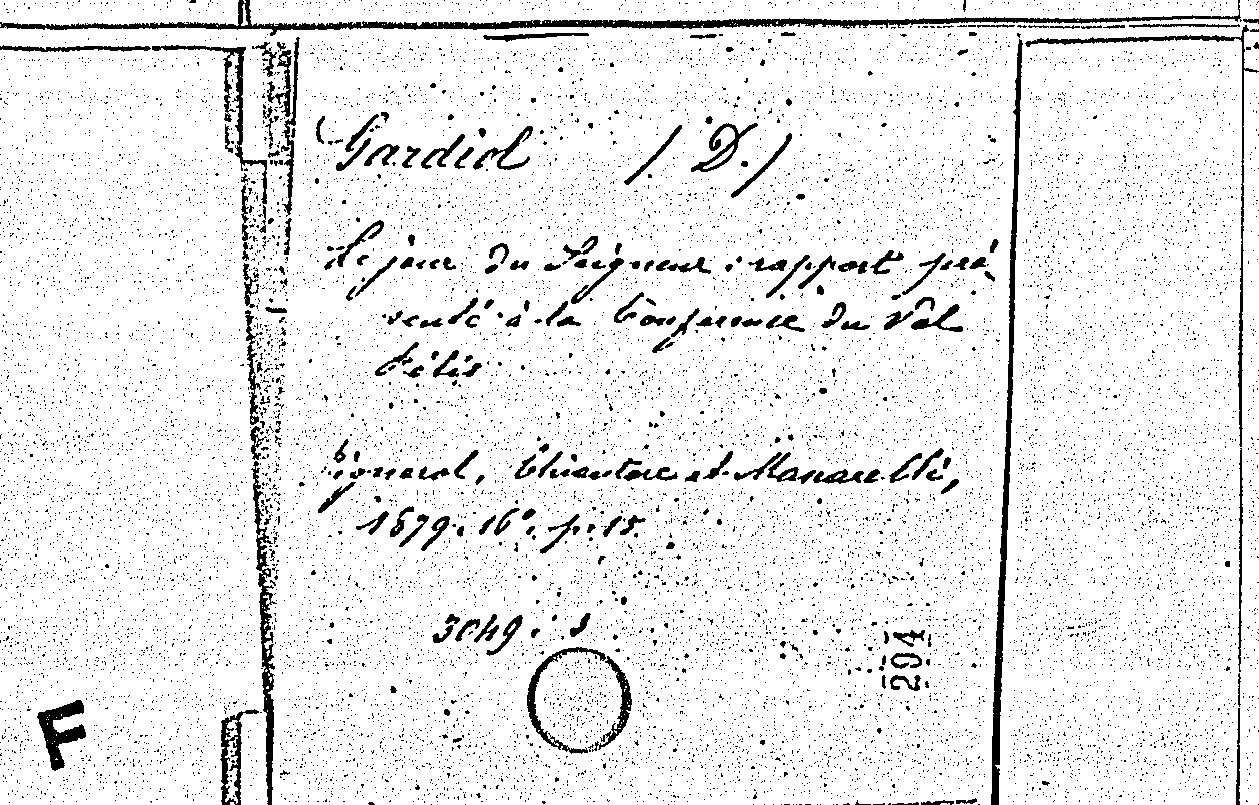 Gardiol (D.)
Le jour du Seigneur : rapport pré-
senté à la Conférence du Val
Pélis
Pignerol, Chiantore et Mascarelli,
1879. 16°. p. 15.
3049.
204
F